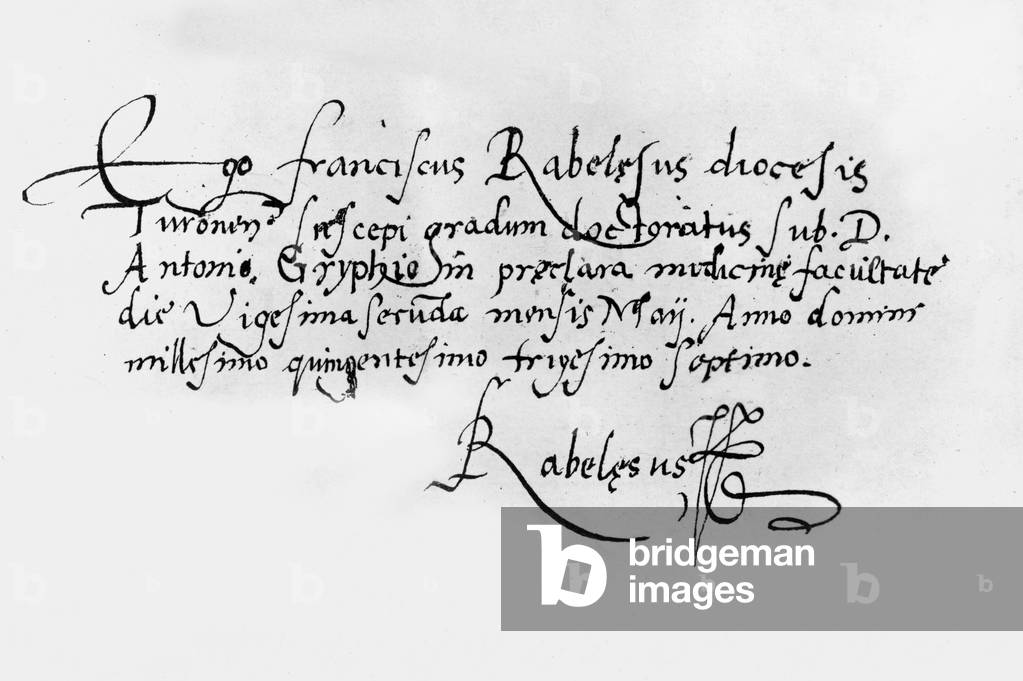 Ego franciscus Rabelęsus diocesis
Turonenˢ suscepi gradum doctoratus sub. D.
Antonio Gryphio in pręclara medicinę facultate
die Vigesima secũda mensis Maij. Anno domini
millesimo quingentesimo trigesimo septimo.
Rabelęsus
bridgeman
images